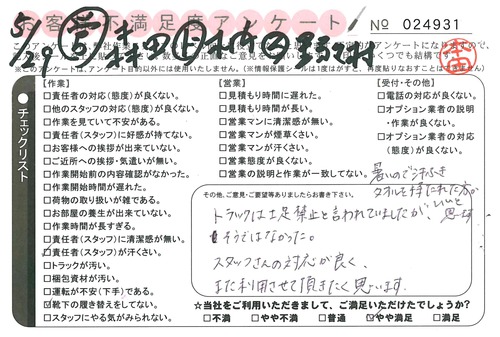 お客様不満足度アンケート
№ 024931
5/29
本田
※このアンケートは、アンケート目的以外には使用いたしません。(※情報保護シールは1度はがすと、再度貼りなおすことはできません)
チェックリスト
【作業】
□責任者の対応(態度)が良くない。
□他のスタッフの対応(態度)が良くない。
□作業を見ていて不安がある。
□責任者(スタッフ)に好感が持てない。
□お客様への挨拶が出来ていない。
□ご近所への挨拶・気遣いが無い。
□作業開始前の内容確認がなかった。
□作業開始時間が遅れた。
□荷物の取り扱いが雑である。
□お部屋の養生が出来ていない。
□作業時間が長すぎる。
□責任者(スタッフ)に清潔感が無い。
☑責任者(スタッフ)が汗くさい。
□トラックが汚い。
□梱包資材が汚い。
□運転が不安(下手)である。
☑靴下の履き替えをしてない。
□スタッフにやる気がみられない。
【営業】
□見積もりに遅れた。
□見積もり時間が長い。
□営業マンに清潔感が無い。
□営業マンが煙草くさい。
□営業マンが汗くさい。
□営業態度が良くない。
□営業の説明と作業が一致してない。
【受付・その他】
□電話の対応が良くない。
□オプション業者の説明・作業が良くない。
□オプション業者の対応(態度)が良くない。
暑いので汗ふき
タオルを持たれた方が
いいと
思います
その他、ご意見・ご要望等ありましたらお書き下さい。
トラックは土足禁止と言われていましたが、
そうではなかった。
スタッフさんの対応が良く、
また利用させて頂きたく思います。
☆当社をご利用いただきまして、ご満足いただけたでしょうか?
□不満 □やや不満 □普通 ☑やや満足 □満足